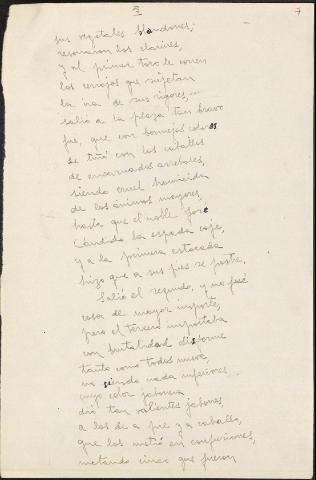 3
7
sus vegetales blandones;
resonaron los clarines,
y al primer toro le corren
los cerrojos que sujetan
la ira de sus rigores,
salió a la plaza tan bravo
fue, que con bermejos colores
se tiñó con los caballos
de encarnados arreboles,
siendo cruel homicida
de los ánimos mayores,
hasta que el noble José
Cándido la espada coje,
y a la primera estocada
hizo que a sus pies se postre,
Salió el segundo, y no fué
cosa de mayor importe,
pero el tercero importaba
con brutalidad disforme
tanto como todos nueve,
no siendo nada inferiores
cuyo color jabonero
dió tan valientes jabones,
a los de a pie y a caballo,
que los metió en confusiones,
matando cinco que fueron